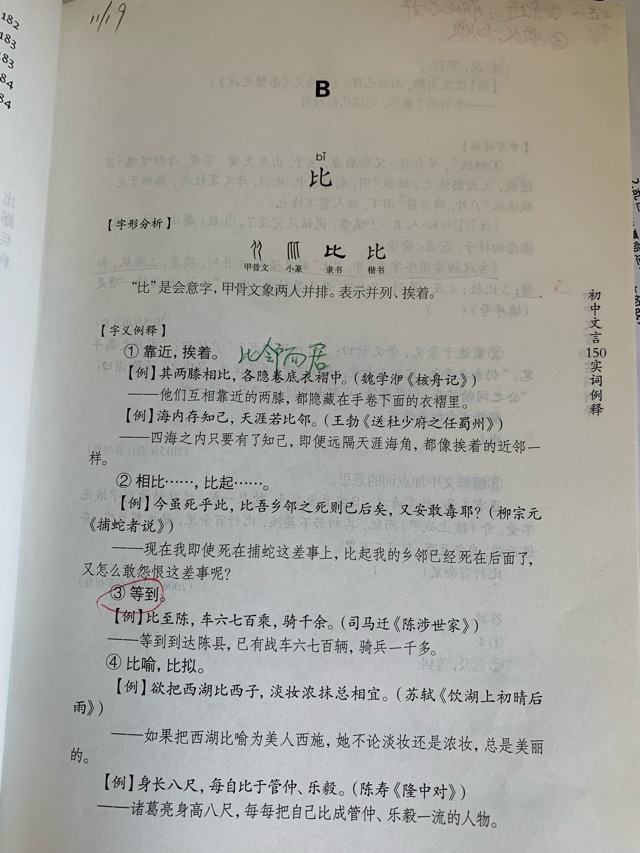 182
183
183
84
84
11/19
B
bǐ
比
【字形分析】
比 比
甲骨文 小篆 隶书 楷书
“比”是会意字，甲骨文象两人并排。表示并列、挨着。
【字义例释】
① 靠近，挨着。 比邻而居
【例】其两膝相比，各隐卷底衣褶中。（魏学洢《核舟记》）
——他们互相靠近的两膝，都隐藏在手卷下面的衣褶里。
【例】海内存知己，天涯若比邻。（王勃《送杜少府之任蜀州》）
——四海之内只要有了知己，即便远隔天涯海角，都像挨着的近邻一
样。
② 相比……，比起……。
【例】今虽死乎此，比吾乡邻之死则已后矣，又安敢毒耶？（柳宗元
《捕蛇者说》）
——现在我即使死在捕蛇这差事上，比起我的乡邻已经死在后面了，
又怎么敢怨恨这差事呢？
③ 等到。
【例】比至陈，车六七百乘，骑千余。（司马迁《陈涉世家》）
——等到到达陈县，已有战车六七百辆，骑兵一千多。
④ 比喻，比拟。
【例】欲把西湖比西子，淡妆浓抹总相宜。（苏轼《饮湖上初晴后
雨》）
——如果把西湖比喻为美人西施，她不论淡妆还是浓妆，总是美丽
的。
【例】身长八尺，每自比于管仲、乐毅。（陈寿《隆中对》）
——诸葛亮身高八尺，每每把自己比成管仲、乐毅一流的人物。
初中文言150实词例释